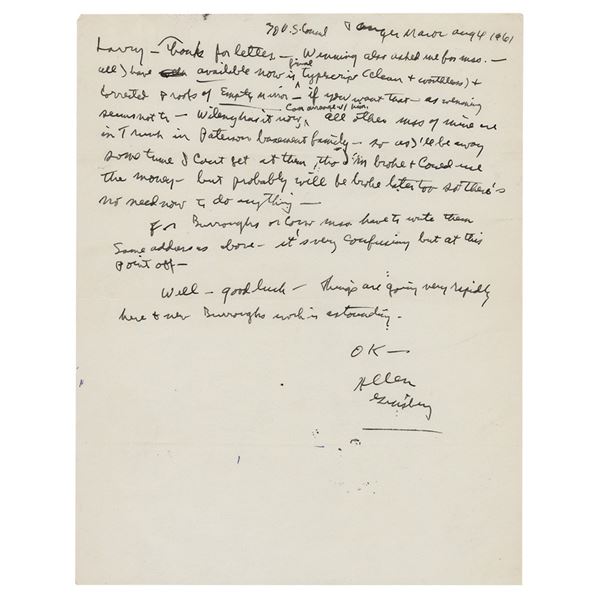 % U.S. Consul Tanger Maroc Aug 4 1961
Larry — Thanks for letter — Wenning also asked me for mss. —
all I have available now is final typescript (clean & worthless) &
corrected proofs of Empty Mirror — if you want that — as wenning
seems not to — Wilentz has it now, Can arrange w/ him. all other mss of mine are
in Trunk in Paterson basement family — so as I'll be away
some time I can't get at them, tho I'm broke & could use
the money — but probably will be broke later too so there's
no need now to do anything —
For Burroughs or Corso mss. have to write them
Same address as above — it's very confusing but at this
point off —
Well — good luck — Things are going very rapidly
here & new Burroughs work is astounding.
OK —
Allen
Ginsberg